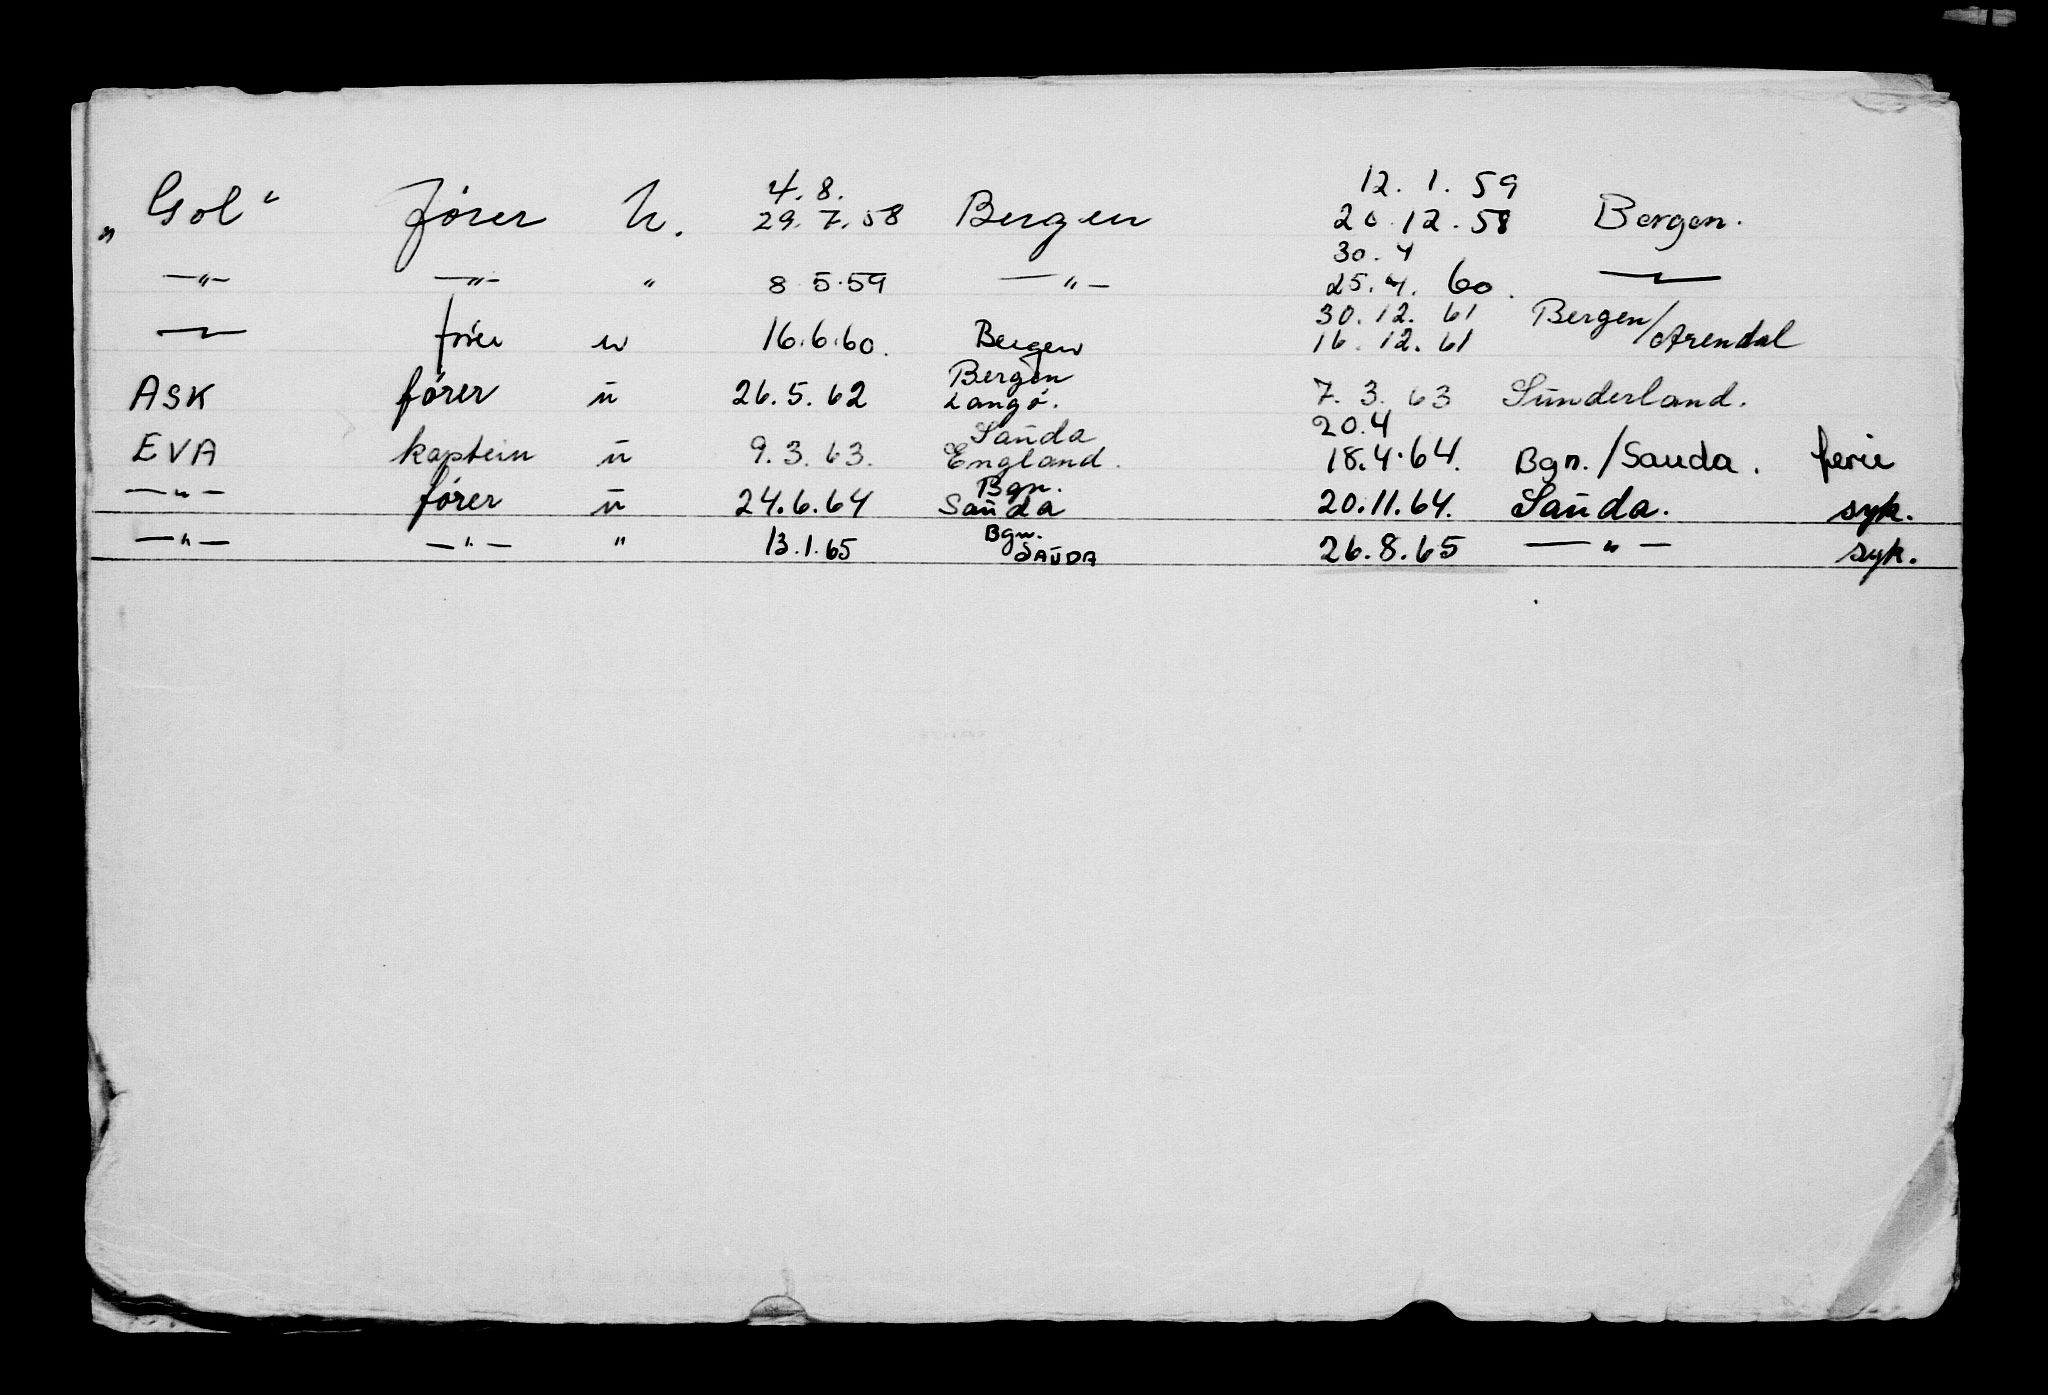 4. 8. 12. 1. 59
„Gol“ fører u. 29. 7. 58 Bergen 20. 12. 58 Bergen.
30. 4
—"— —"— " 8 5.59 —"— 25. 4. 60. —"—
30. 12. 61 Bergen/Arendal
—"— fører u 16.6.60. Bergen 16. 12. 61
Bergen
ASK fører u 26.5.62 Langö. 7. 3. 63 Sunderland.
Sauda 20.4
EVA kaptein u 9.3.63. England. 18.4.64. Bgn./Sauda. ferie
Bgn.
—"— fører u 24.6.64 Sauda 20.11.64. Sauda. syk.
Bgn.
—"— —"— " 13.1.65 SAUDA 26.8.65 —"— syk.